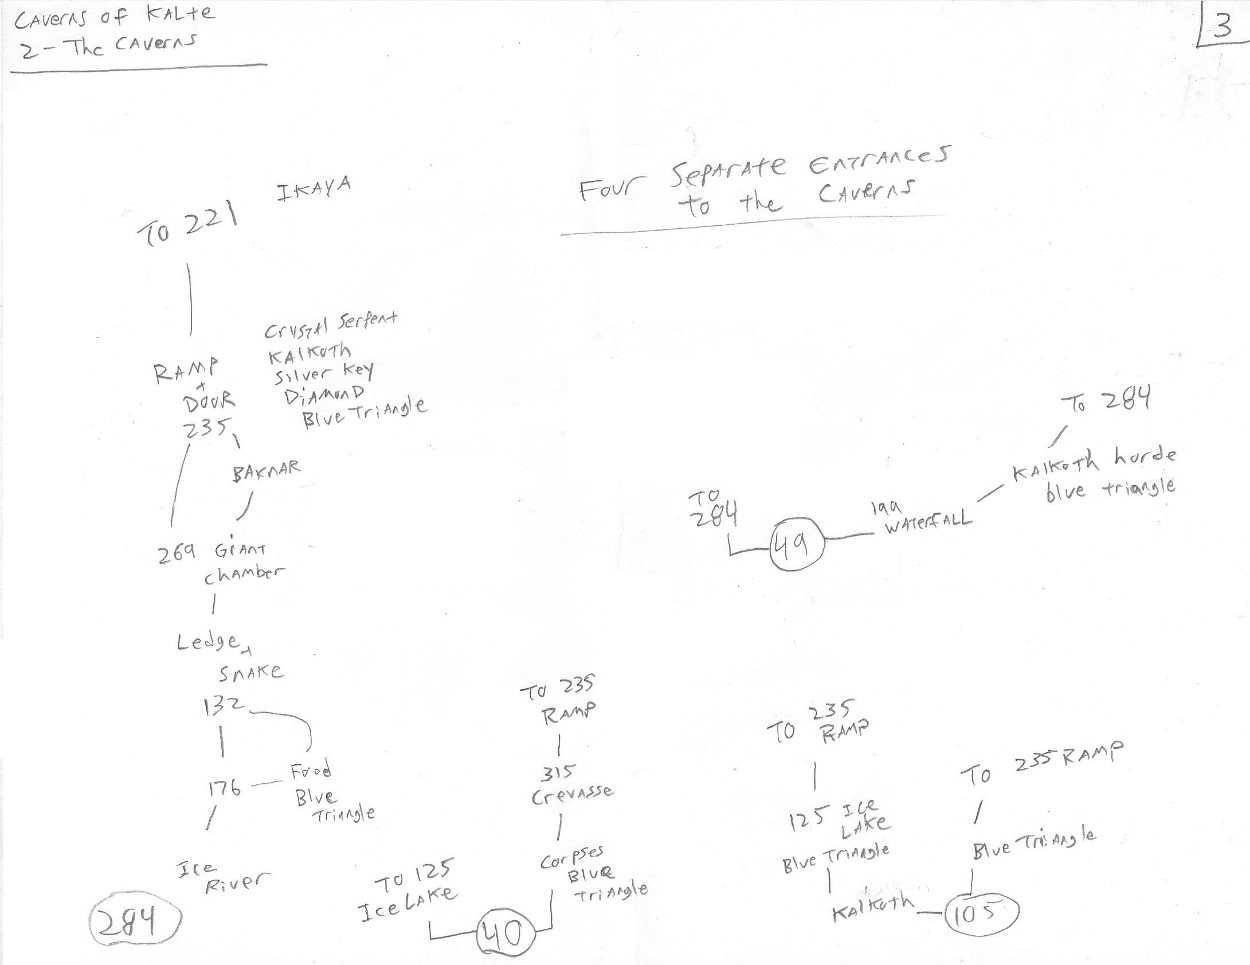 CAVERNS OF KALTE
2 - The CAVERNS
3
Four Separate Entrances
to the Caverns
IKAYA
TO 221
Crystal Serpent
KALKOTH
Silver Key
DIAMOND
Blue Triangle
RAMP
+
DOOR
235
BAKNAR
269 GIANT
Chamber
Ledge +
SNAKE
132
176
Food
Blue
Triangle
Ice
River
284
TO 125
Ice LAKE
40
TO 235
RAMP
315
Crevasse
Corpses
Blue
Triangle
TO
284
49
199
WATERFALL
KALKOTH horde
blue triangle
To 284
TO 235
RAMP
125 ICE
LAKE
Blue Triangle
KALKOTH
105
To 235 RAMP
Blue Triangle